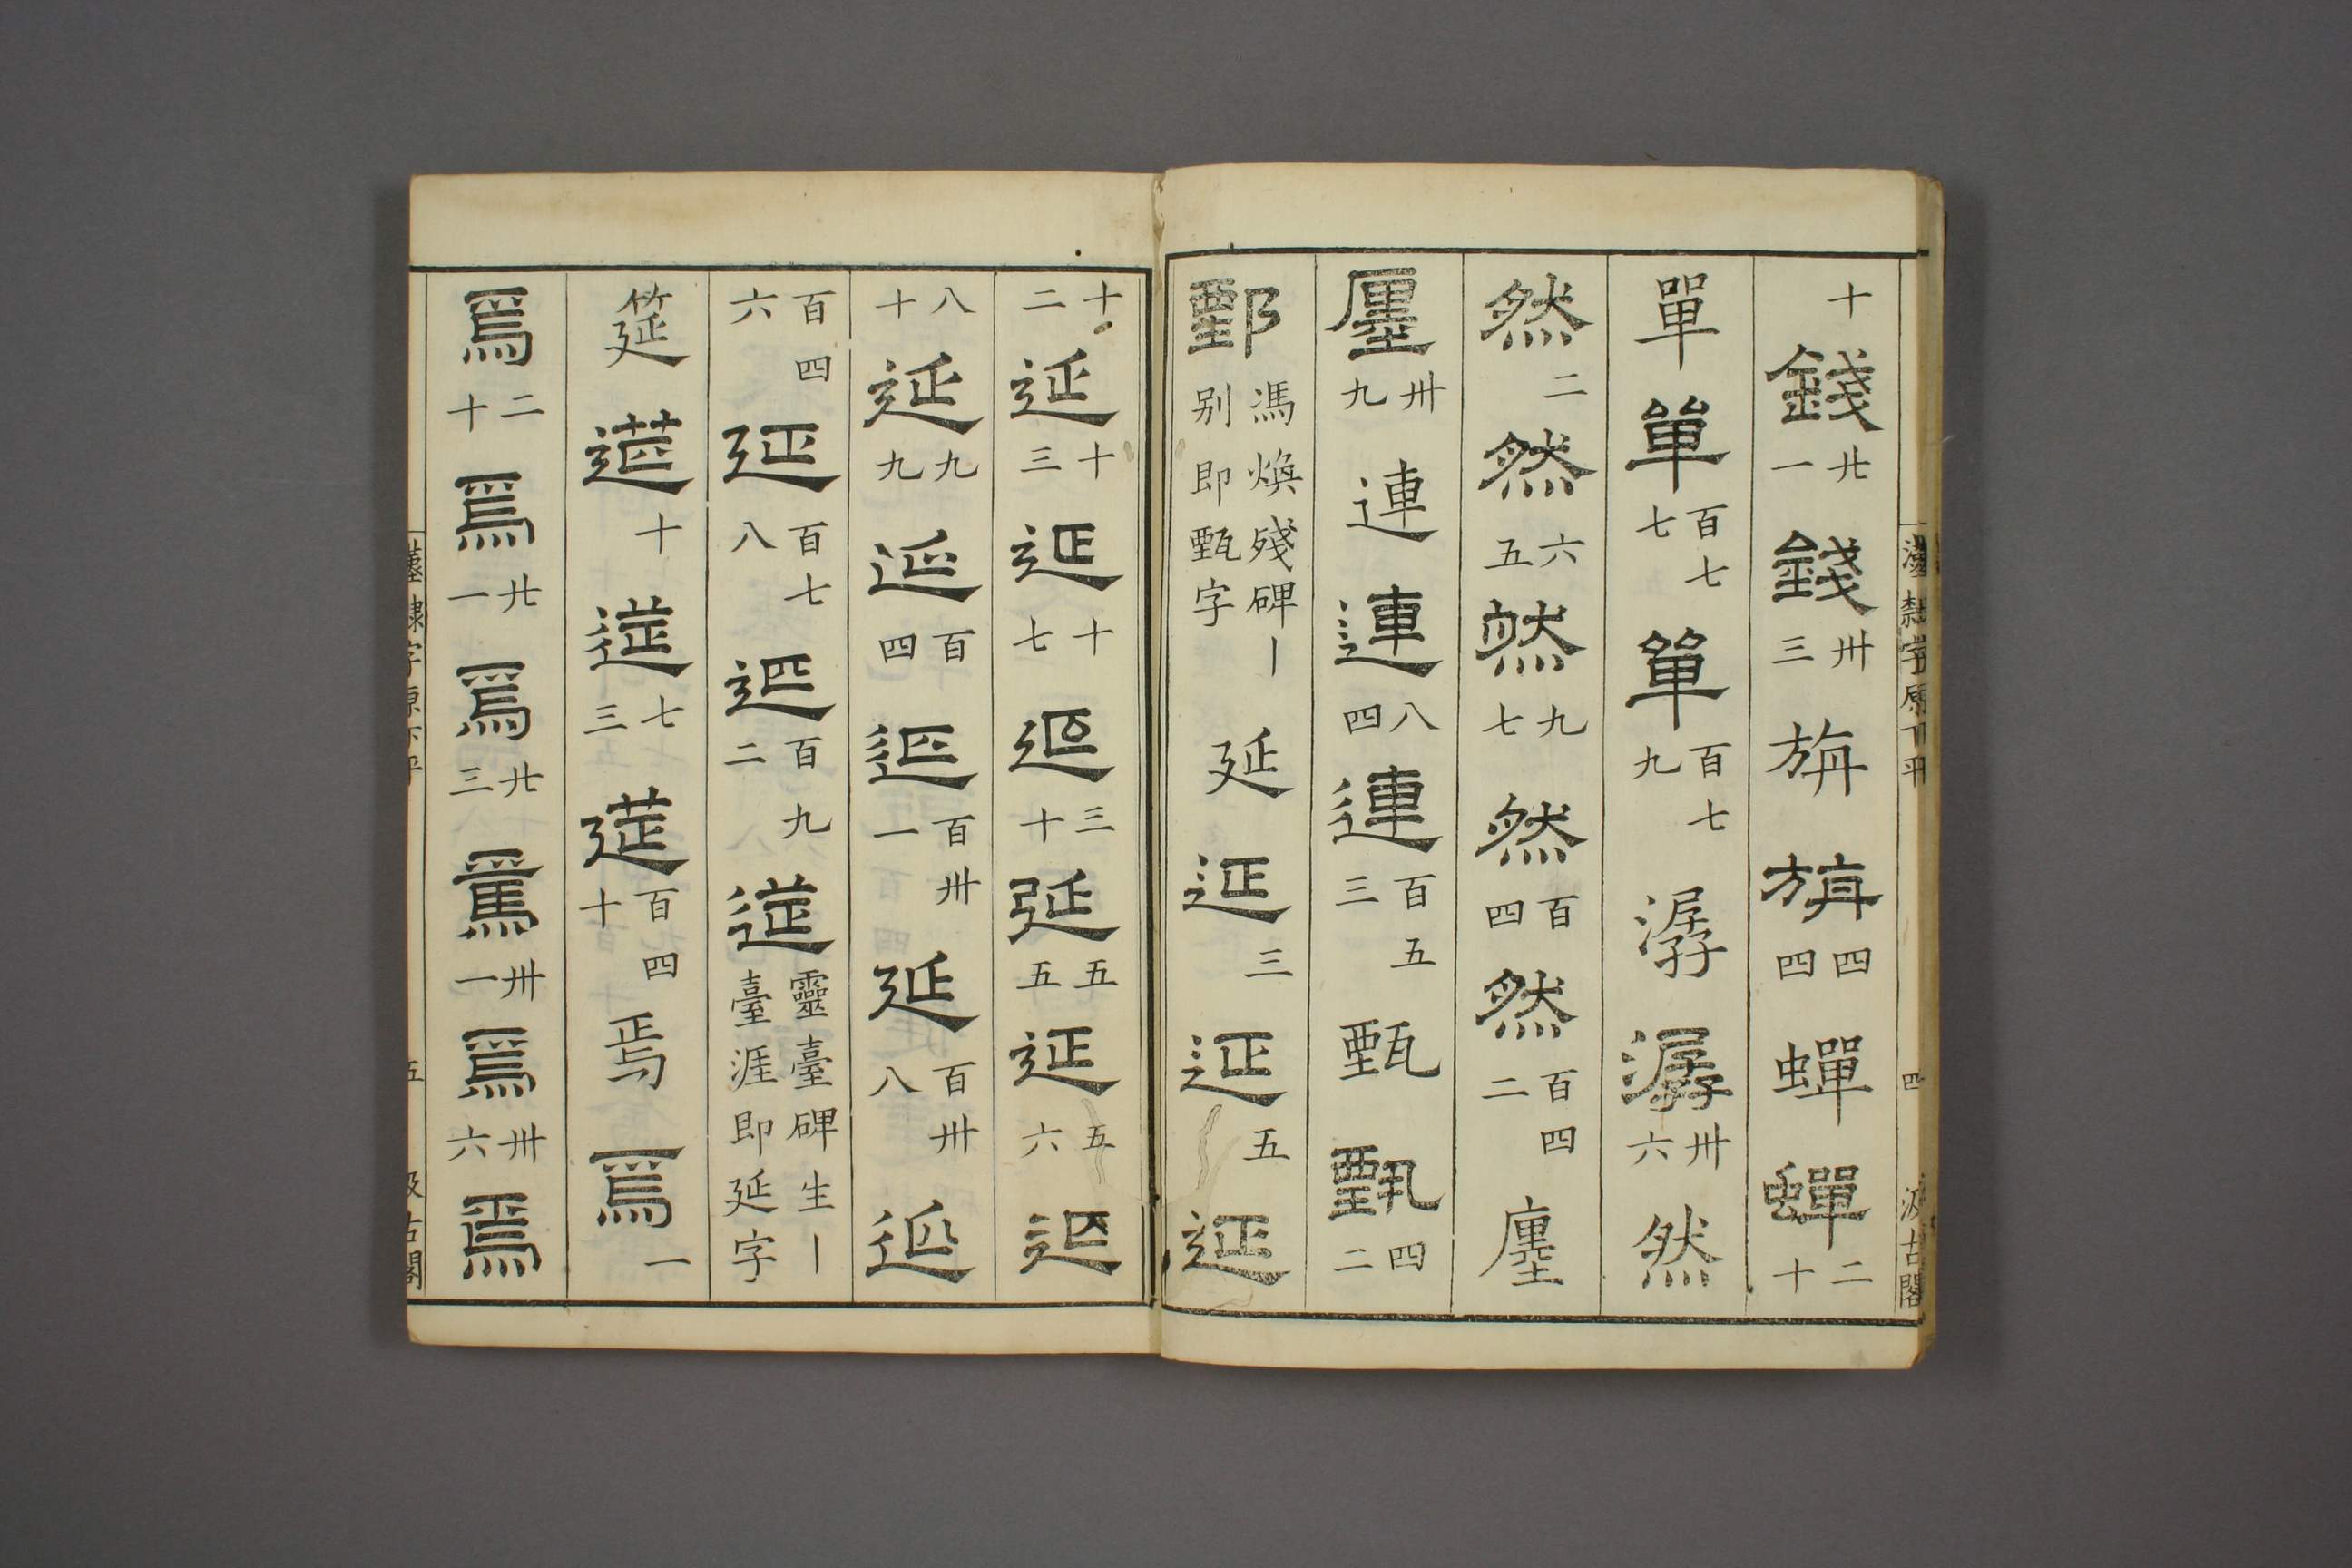 十錢廿一錢卅三旃旃四四蟬蟬二十
單單百七七單百七九潺潺卅六然
然二然六五然九七然百四然百四二廛
廛卅九連連八四連百五三甄甄四二
鄄馮煥殘碑丨别即甄字延延三延五延
十二延十三延十七延三十延五五延五六延
八十延九九延百四延百卅一延百卅八延
百四六延百七八延百九二莚靈臺碑生丨臺涯即延字
筵莚十莚七三莚百四十焉焉一
焉二十焉廿一焉廿三焉卅一焉卅六焉
漢隸字原下平
四
汲古閣
漢隸字原下平
五
汲古閣